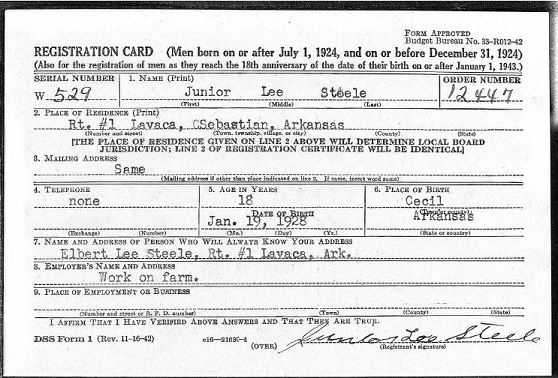 FORM APPROVED
Budget Bureau No. 33-R012-42
REGISTRATION CARD (Men born on or after July 1, 1924, and on or before December 31, 1924)
(Also for the registration of men as they reach the 18th anniversary of the date of their birth on or after January 1, 1943.)
SERIAL NUMBER 1. NAME (Print) ORDER NUMBER
W 529 Junior Lee Steele 12447
(First) (Middle) (Last)
2. PLACE OF RESIDENCE (Print)
Rt. #1 Lavaca, CSebastian, Arkansas
(Number and street) (Town, township, village, or city) (County) (State)
[THE PLACE OF RESIDENCE GIVEN ON LINE 2 ABOVE WILL DETERMINE LOCAL BOARD
JURISDICTION; LINE 2 OF REGISTRATION CERTIFICATE WILL BE IDENTICAL]
3. MAILING ADDRESS
Same
(Mailing address if other than place indicated on line 2. If same, insert word same)
4. TELEPHONE 5. AGE IN YEARS 6. PLACE OF BIRTH
none 18 Cecil
DATE OF BIRTH (Town or county)
Jan. 19, 1928 Arkansas
(Exchange) (Number) (Mo.) (Day) (Yr.) (State or country)
7. NAME AND ADDRESS OF PERSON WHO WILL ALWAYS KNOW YOUR ADDRESS
Elbert Lee Steele, Rt. #1 Lavaca, Ark.
8. EMPLOYER'S NAME AND ADDRESS
Work on farm.
9. PLACE OF EMPLOYMENT OR BUSINESS
(Number and street or R. F. D. number) (Town) (County) (State)
I AFFIRM THAT I HAVE VERIFIED ABOVE ANSWERS AND THAT THEY ARE TRUE.
DSS Form 1 (Rev. 11-16-42) c16—21630-4 Junior Lee Steele
(OVER) (Registrant's signature)